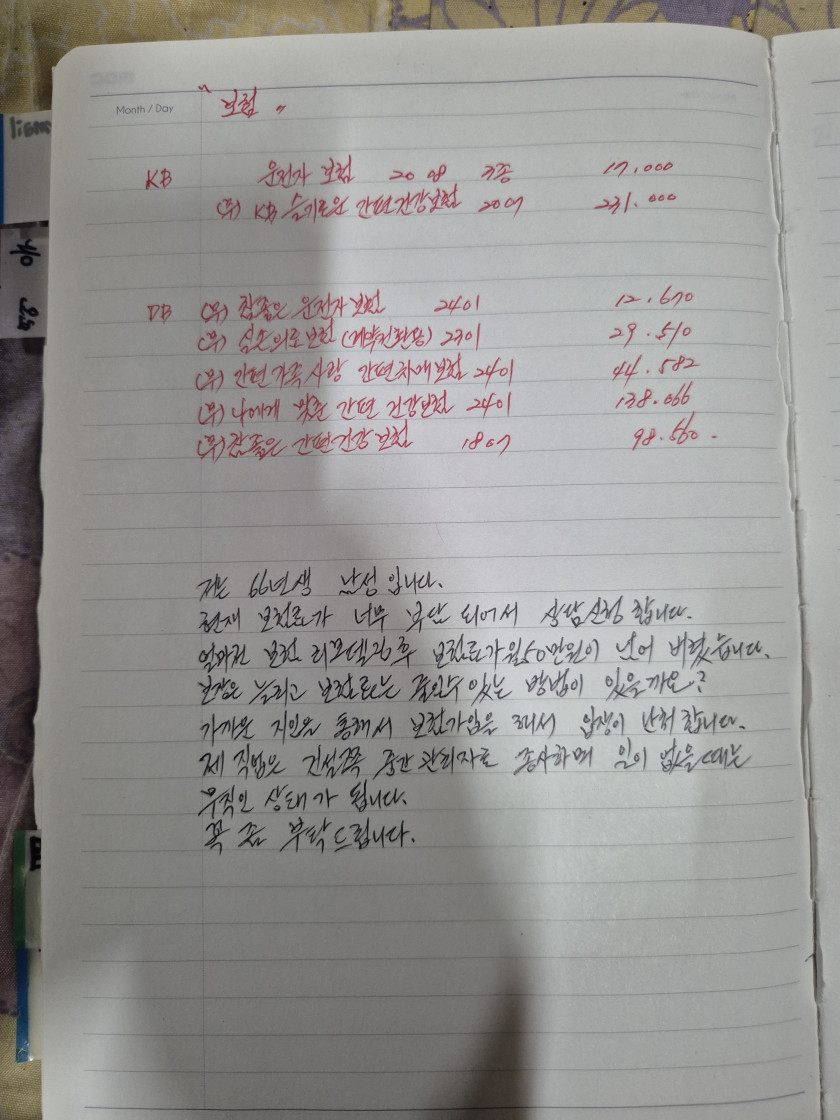 Month / Day " 보험 "
KB 운전자 보험 2008 17,000
(무) KB 슬기로운 간편건강보험 2007 231.000
DB (무) 참좋은 운전자 보험 2401 12.670
(무) 실손의료보험 (계약전환용) 2301 29.510
(무) 간편가족사랑 간편치매보험 2401 44.582
(무) 나에게 맞춘 간편 건강보험 2401 138.066
(무) 참좋은 간편건강보험 1807 98.560 -
저는 66년생 남성 입니다.
현재 보험료가 너무 부담 되어서 상담신청 합니다.
얼마전 보험 리모델링 후 보험료가 월50만원이 넘어 버렸습니다.
보장은 늘리고 보험료는 줄일수 있는 방법이 있을까요?
가까운 지인을 통해서 보험가입을 해서 입장이 난처 합니다.
제 직업은 건설쪽 중간 관리자로 종사하며 일이 없을때는
무직인 상태가 됩니다.
꼭 좀 부탁드립니다.